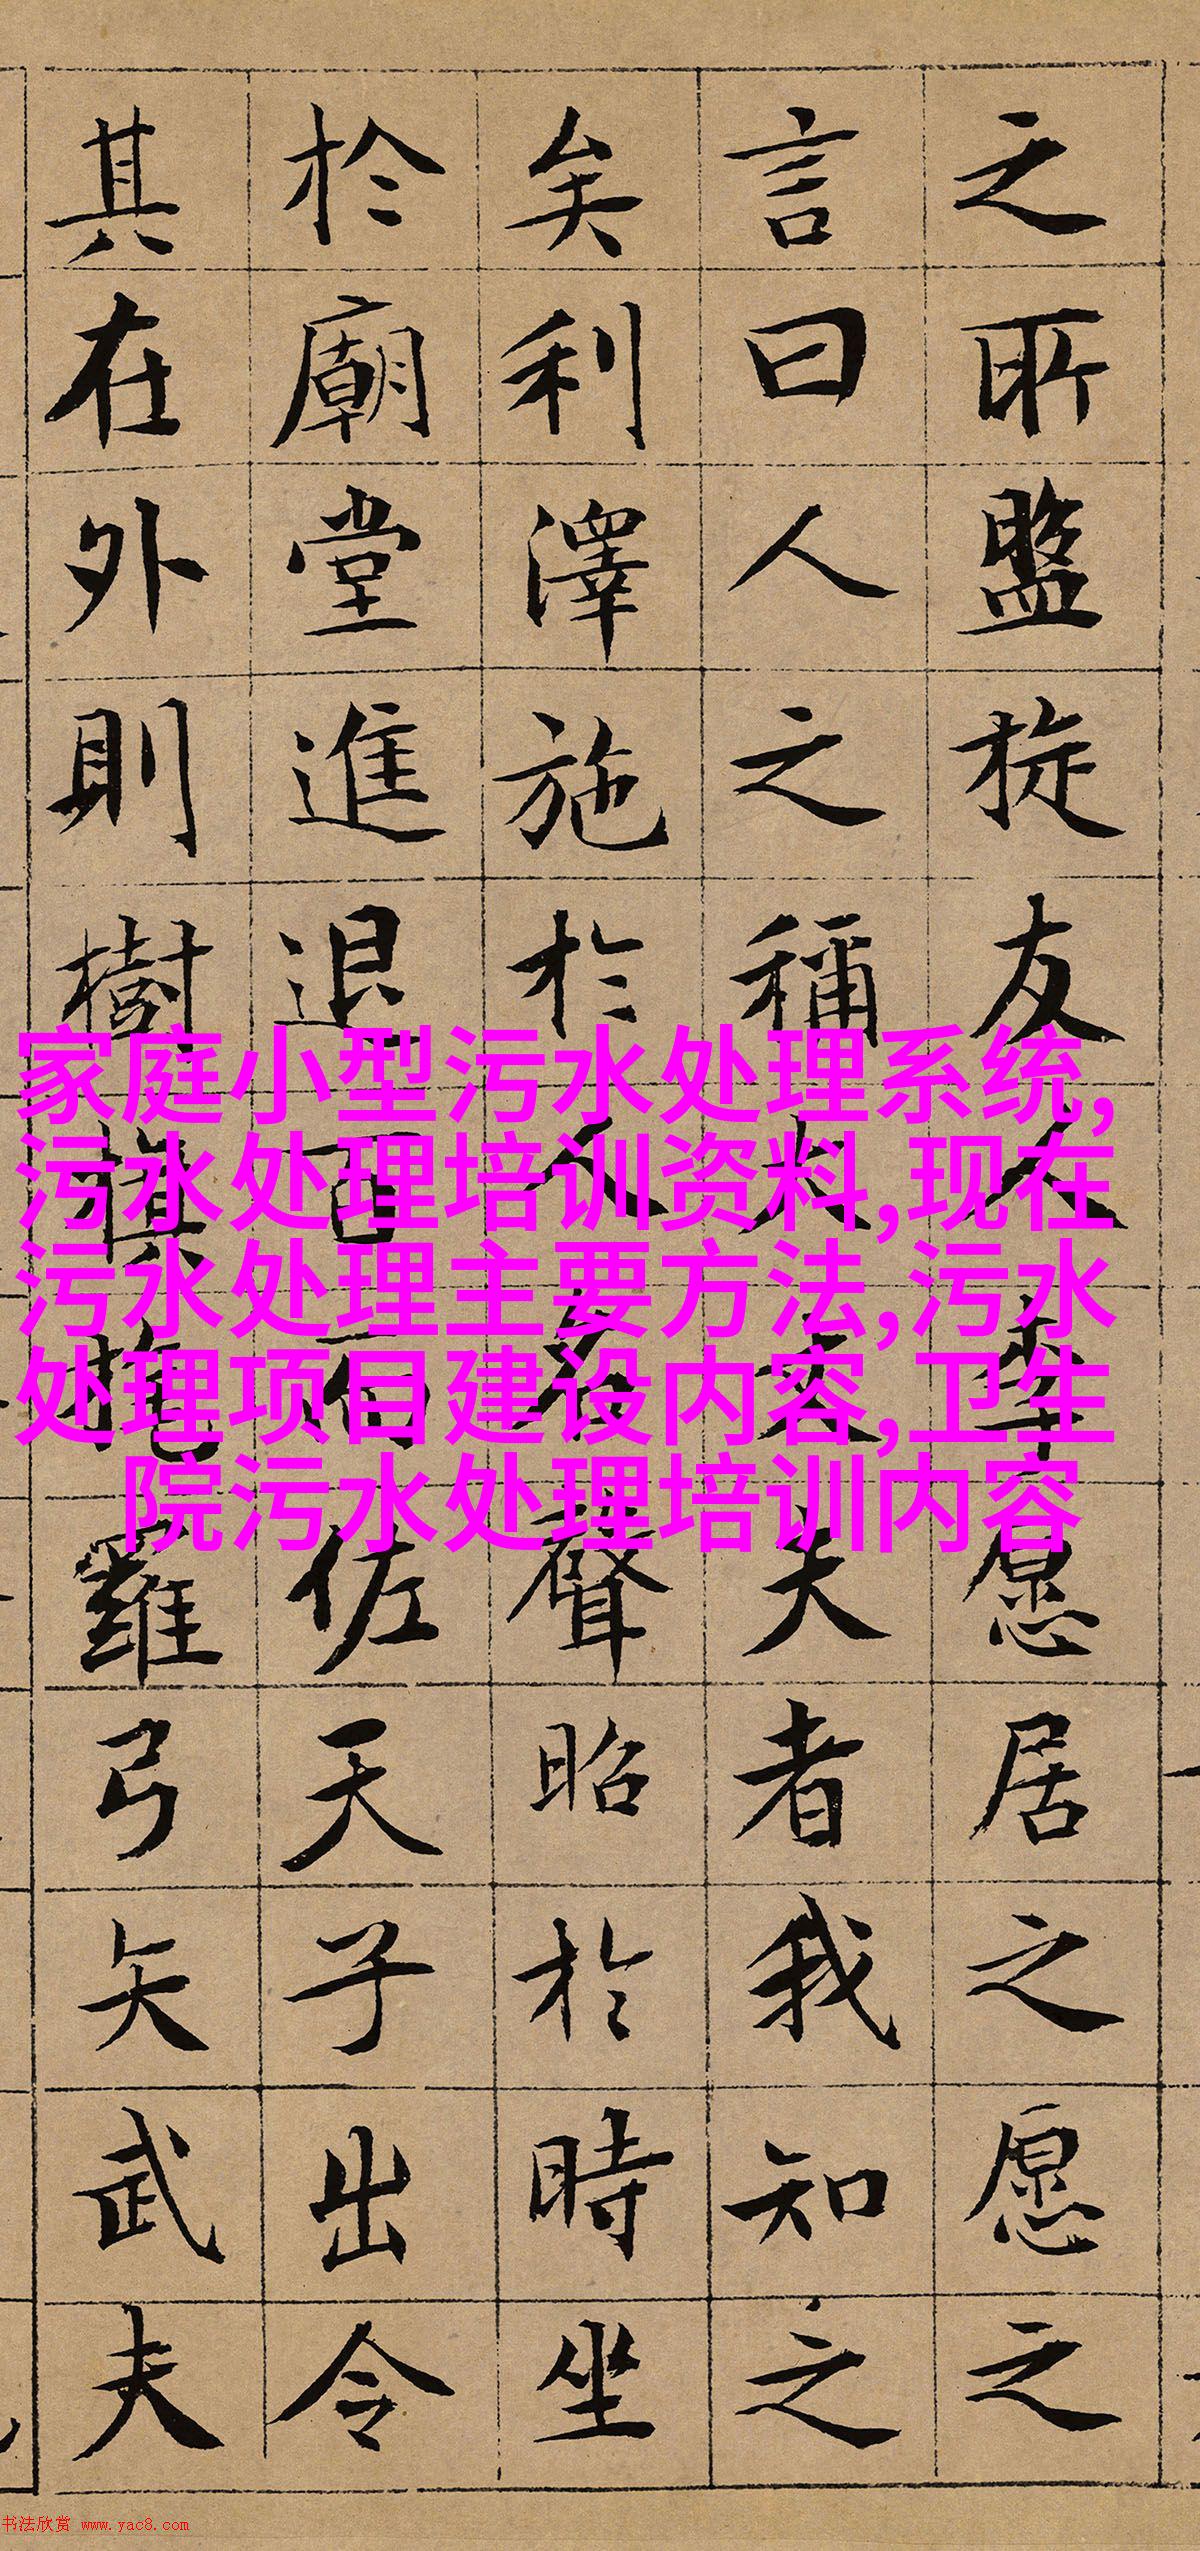 之所盤旋友人李愿居之愿之
言曰人之稱大丈夫者我知之
矣利澤施於人名聲昭於時坐
於廟堂進退百而佐天子出令
其在外則樹旗旄羅弓矢武夫
家庭小型污水处理系统,
污水处理培训资料,现在
污水处理主要方法,污水
处理项目建设内容,卫生
院污水处理培训内容
书法欣赏 www.yac8.com